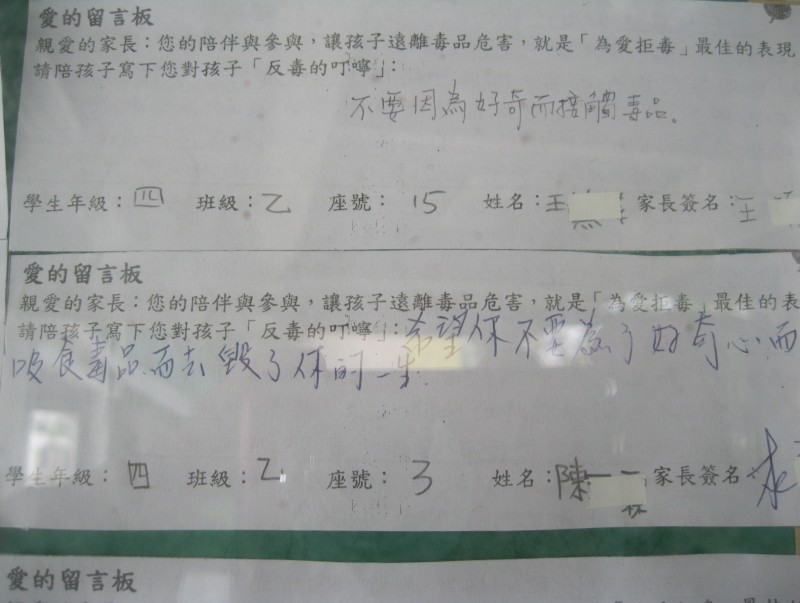 愛的留言板
親愛的家長：您的陪伴與參與，讓孩子遠離毒品危害，就是「為愛拒毒」最佳的表現
請陪孩子寫下您對孩子「反毒的叮嚀」：
不要因為好奇而接觸毒品。
學生年級：四 班級：乙 座號：15 姓名：王 家長簽名：王
愛的留言板
親愛的家長：您的陪伴與參與，讓孩子遠離毒品危害，就是「為愛拒毒」最佳的表
請陪孩子寫下您對孩子「反毒的叮嚀」：希望你不要為了好奇心而
吸食毒品而去毀了你的一生
學生年級：四 班級：乙 座號：3 姓名：陳 家長簽名：
愛的留言板